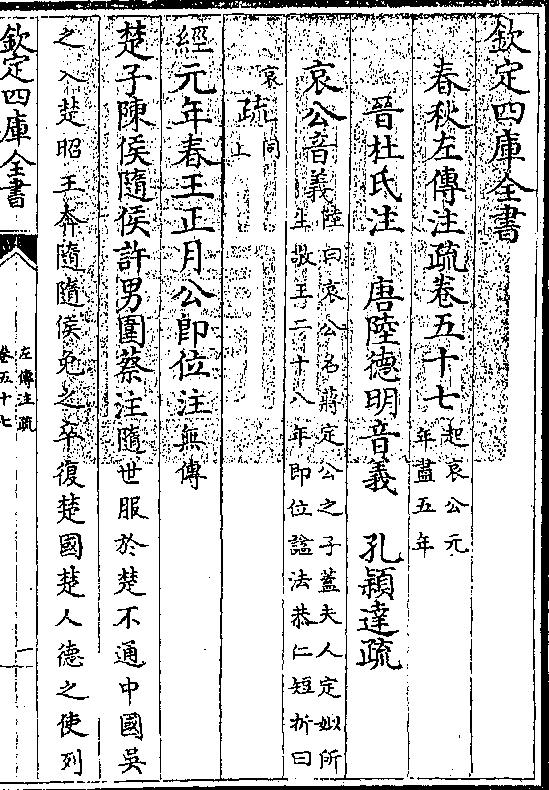 欽定四庫全書
春秋左傳注疏卷五十七起哀公元年盡五年
晉杜氏注 唐陸德明音義 孔穎達疏
哀公音義陸曰哀公名蔣定公之子蓋夫人定姒所生敬王二十八年即位諡法恭仁短折曰
哀疏同上
經元年春王正月公即位注無傳
楚子陳侯隨侯許男圍蔡注隨世服於楚不通中國吳
之入楚昭王奔隨隨侯免之卒復楚國楚人德之使列
欽定四庫全書
左傳注疏
卷五十七
一